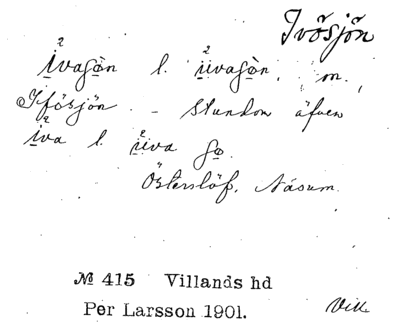 Ivösjön
ivasjön l. üvasjön, m.
Ifösjön - stundom äfven
iva l. üva sjø.
Österslöf, Näsum.
№ 415 Villands hd
Per Larsson 1901.
Vill.